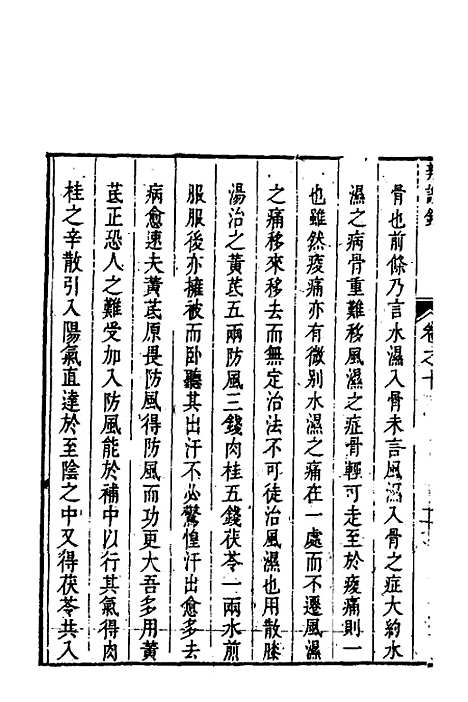 辨證錄
卷之十
骨也前條乃言水濕入骨未言風濕入骨之症大約水
濕之病骨重難移風濕之症骨輕可走至於痠痛則一
也雖然痠痛亦有微別水濕之痛在一處而不遷風濕
之痛移來移去而無定治法不可徒治風濕也用散膝
湯治之黃茋五兩防風三錢肉桂五錢茯苓一兩水煎
服服後亦擁被而卧聽其出汗不必驚惶汗出愈多去
病愈速夫黃茋原畏防風得防風而功更大吾多用黃
茋正恐人之難受加入防風能於補中以行其氣得肉
桂之辛散引入陽氣直達於至陰之中又得茯苓共入